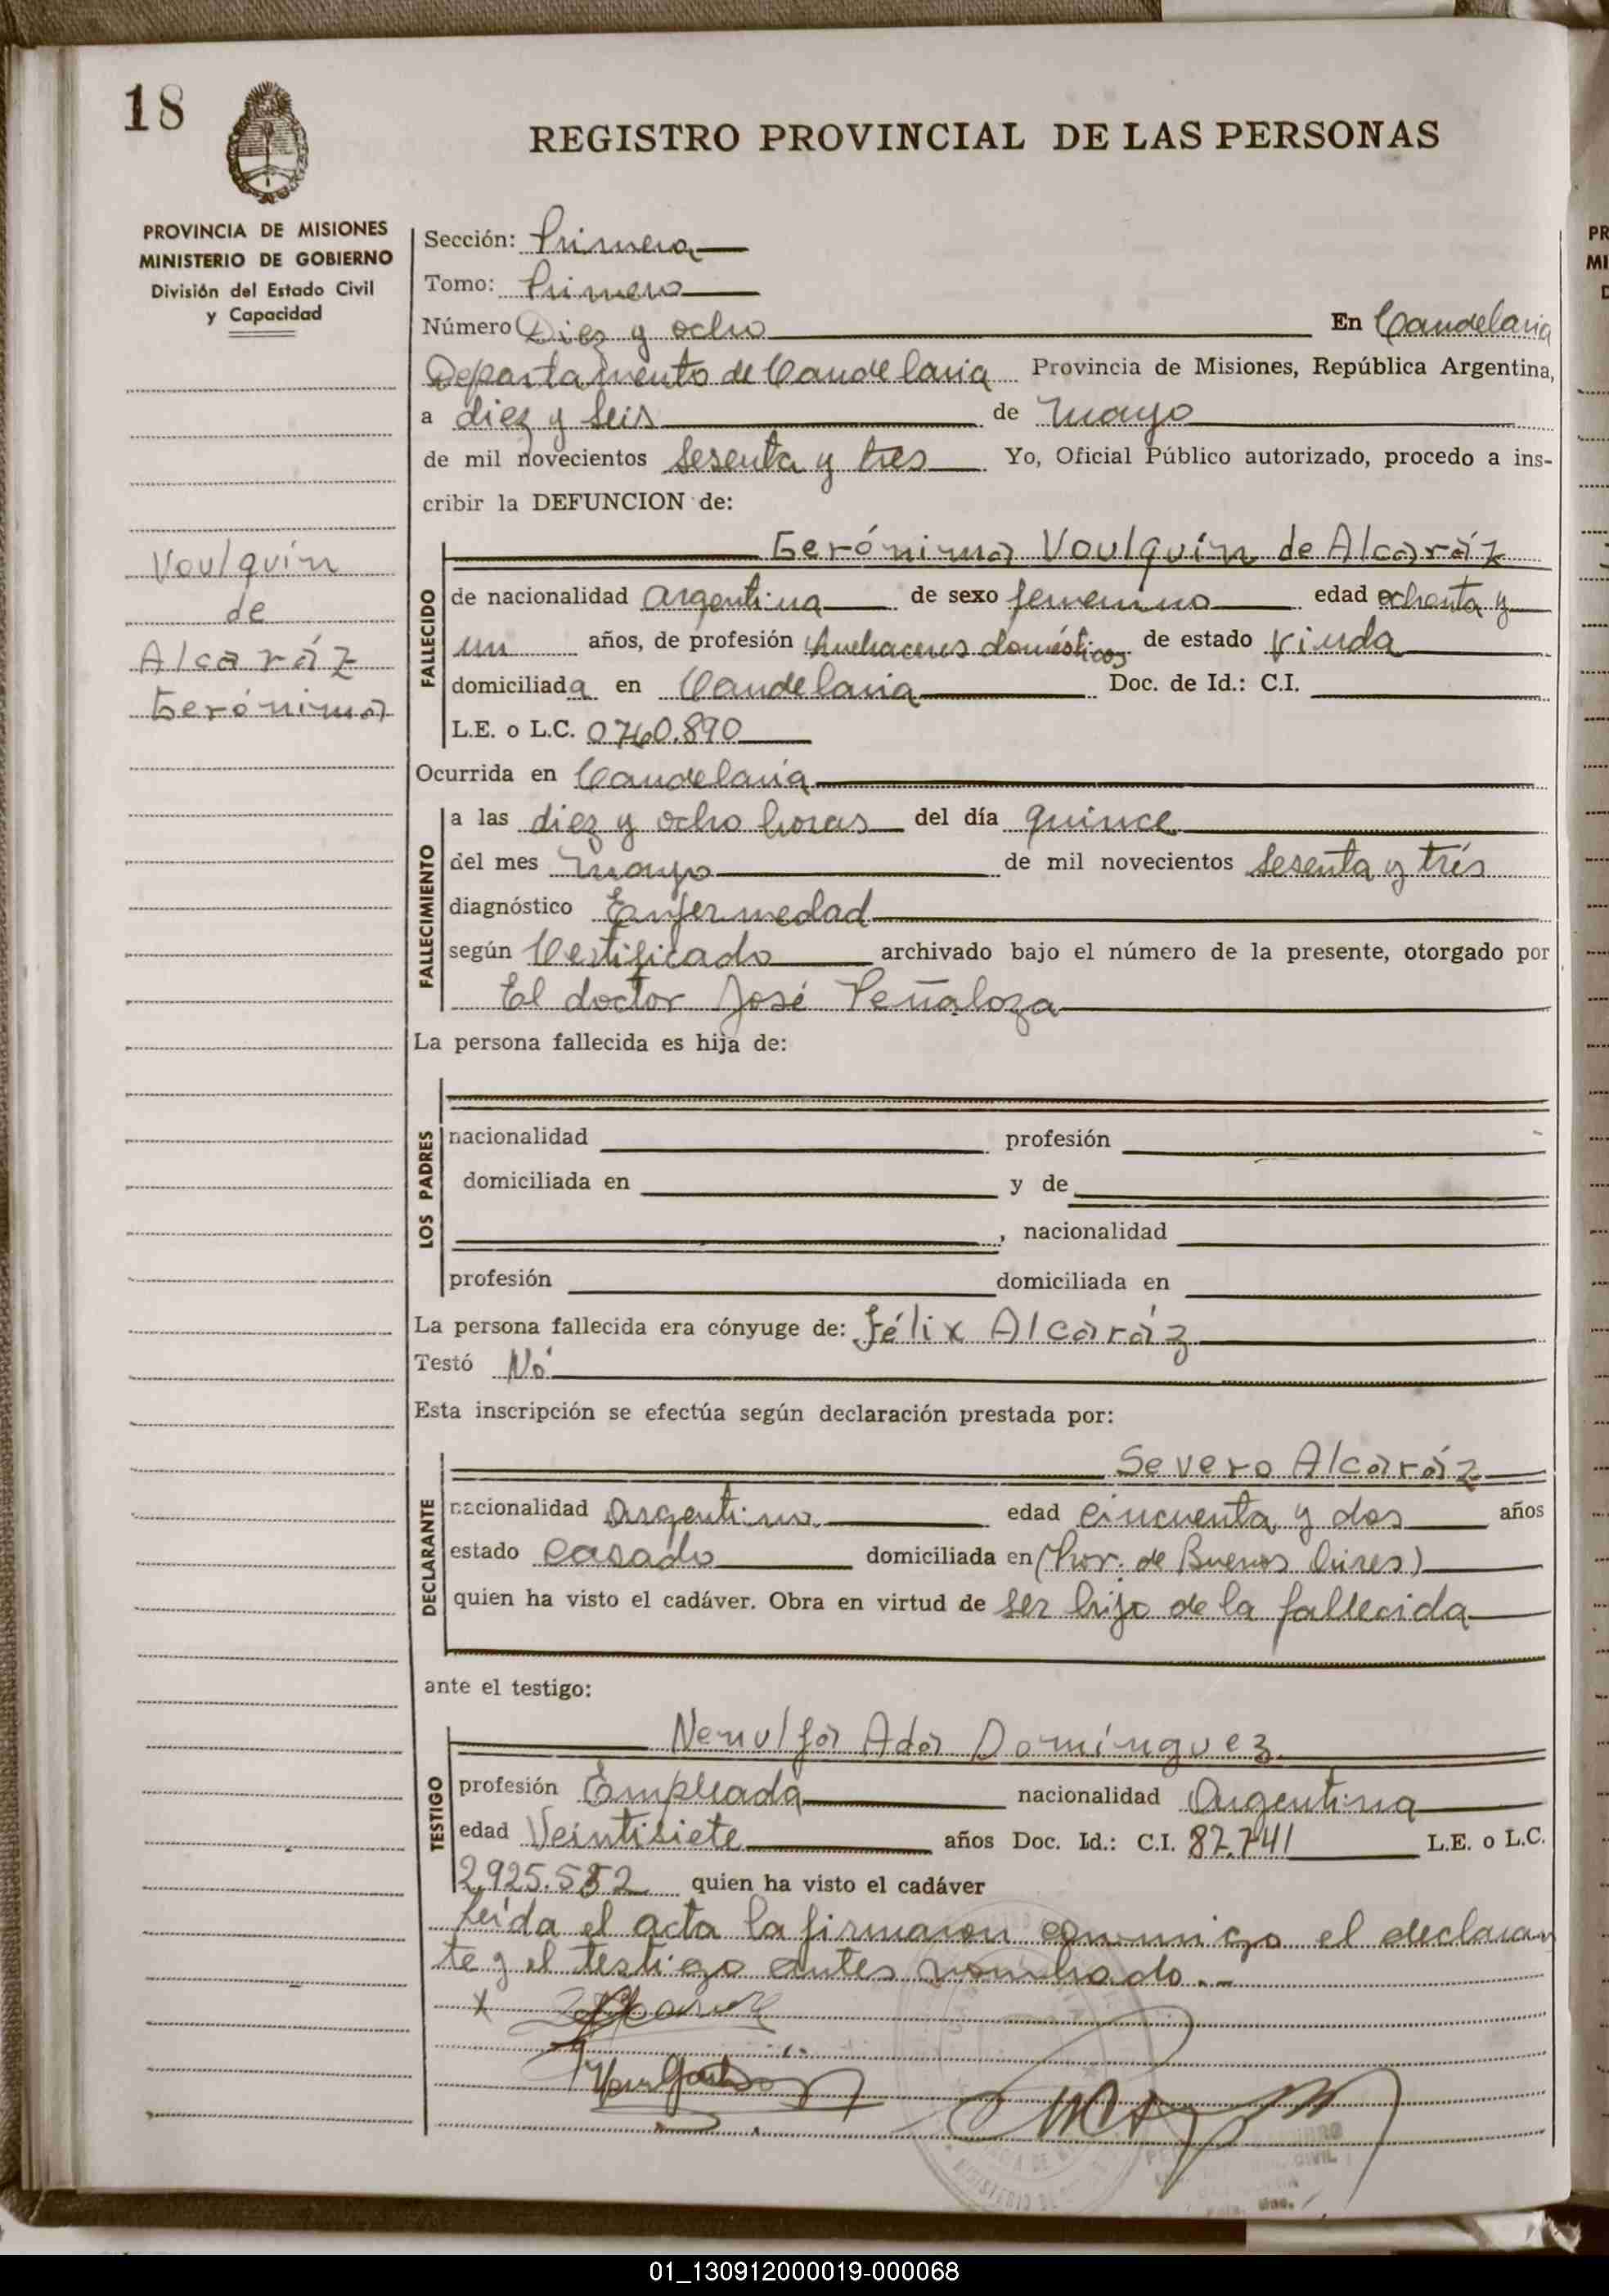 18
REGISTRO PROVINCIAL DE LAS PERSONAS
PROVINCIA DE MISIONES
MINISTERIO DE GOBIERNO
División del Estado Civil
y Capacidad
Sección: Primera
Tomo: Primero
Número Diez y ocho En Candelaria
Departamento de Candelaria Provincia de Misiones, República Argentina,
a diez y seis de mayo
de mil novecientos sesenta y tres Yo, Oficial Público autorizado, procedo a ins-
cribir la DEFUNCION de:
Voulquín
de
Alcaráz
Gerónima
FALLECIDO
Gerónima Voulquín de Alcaráz
de nacionalidad argentina de sexo femenino edad ochenta y
un años, de profesión Quehaceres domésticos de estado viuda
domiciliada en Candelaria Doc. de Id.: C.I.
L.E. o L.C. 0760.890
Ocurrida en Candelaria
FALLECIMIENTO
a las diez y ocho horas del día quince
del mes Mayo de mil novecientos sesenta y trés
diagnóstico Enfermedad
según Certificado archivado bajo el número de la presente, otorgado por
El doctor José Peñaloza
La persona fallecida es hija de:
LOS PADRES
nacionalidad profesión
domiciliada en y de
, nacionalidad
profesión domiciliada en
La persona fallecida era cónyuge de: Félix Alcaráz
Testó Nó
Esta inscripción se efectúa según declaración prestada por:
DECLARANTE
Severo Alcaráz
nacionalidad argentino edad cincuenta y dos años
estado casado domiciliada en (Pror. de Buenos Aires)
quien ha visto el cadáver. Obra en virtud de ser hijo de la fallecida
ante el testigo:
TESTIGO
Nenulfa Ada Domínguez
profesión Empleada nacionalidad Argentina
edad Veintisiete años Doc. Id.: C.I. 87.741 L.E. o L.C.
2.925.552 quien ha visto el cadáver
Leída el acta la firmaron conmigo el declaran
te y el testigo antes nombrado..-
x
MINISTERIO DE
01_130912000019-000068